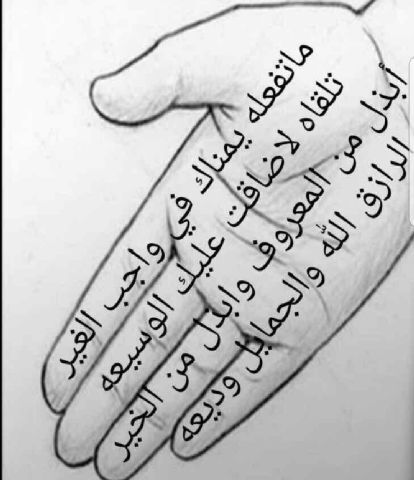 ماتفعله يمناك في واجب الغير
تلقاه لا ضاقت عليك الوسيعه
أبذل من المعروف وابذل من الخير
الرازق الله والجمايل وديعه